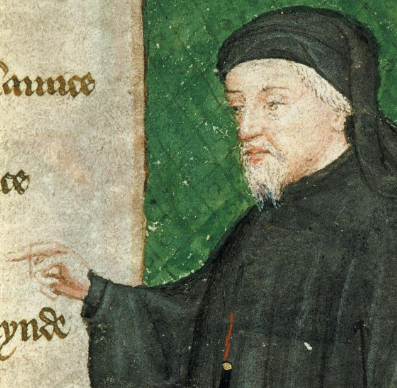 aunce
ce
ynde